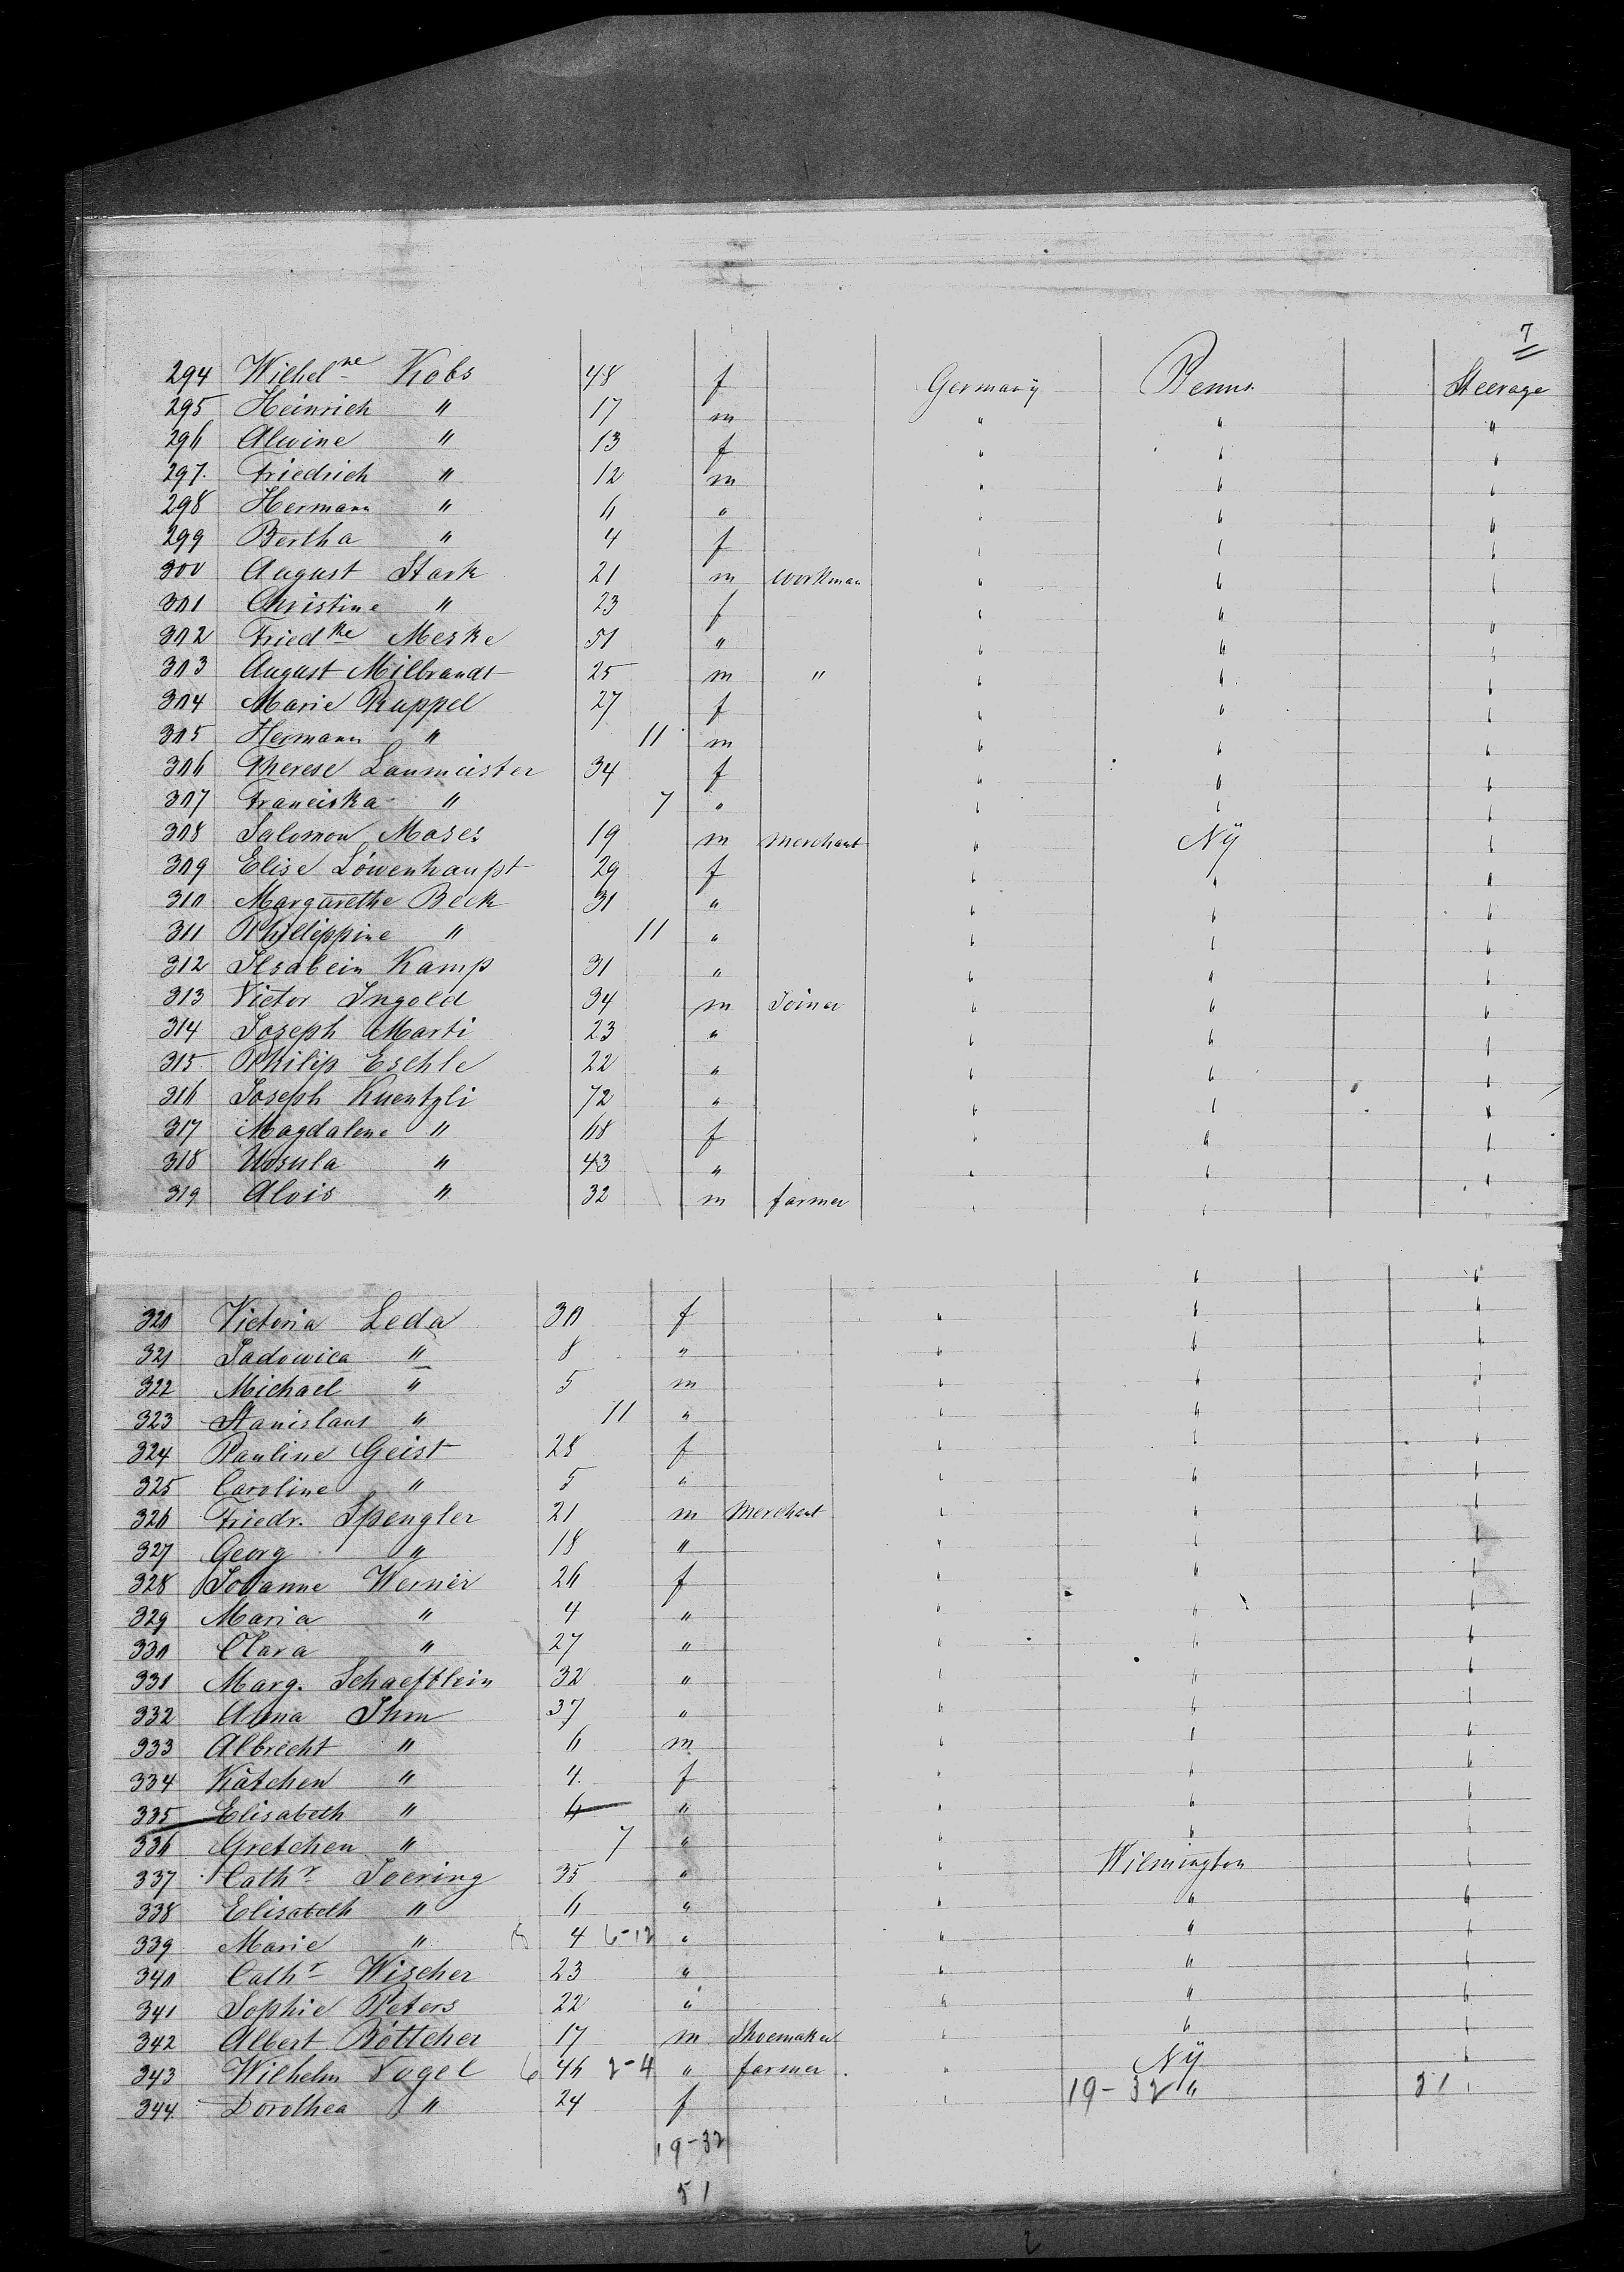 7
294 Wilhel ne Kobs 48 f Germany Penns. Steerage
295 Heinrich " 17 m " " "
296 Alwine " 13 f " " "
297. Friedrich " 12 m " " "
298 Hermann " 6 " " " "
299 Bertha " 4 f " " "
300 August Stark 21 m workman " " "
301 Christine " 23 f " " "
302 Fried ke Meske 51 " " " "
303 August Milbrandt 25 m " " " "
304 Marie Ruppel 27 f " " "
305 Hermann " 11 m " " "
306 Therese Laumeister 34 f " " "
307 Franciska " 7 " " " "
308 Salomon Moses 19 m merchant " NY "
309 Elise Löwenhaupt 29 f " " "
310 Margarethe Beck 31 " " " "
311 Phillippine " 11 " " " "
312 Ilsabein Kamp 31 " " " "
313 Victor Ingold 34 m Joiner " " "
314 Joseph Marti 23 " " " "
315 Philip Eschle 22 " " " "
316 Joseph Kuentzli 72 " " " "
317 Magdalene " 68 f " " "
318 Ursula " 43 " " " "
319 Alois " 32 m farmer " " "
320 Victoria Leda 30 f " " "
321 Jadowica " 8 " " " "
322 Michael " 5 m " " "
323 Stanislaus " 11 " " " "
324 Pauline Geist 28 f " " "
325 Caroline " 5 " " " "
326 Friedr. Spengler 21 m Merchant " " "
327 Georg " 18 " " " "
328 Johanne Werner 26 f " " "
329 Maria " 4 " " " "
330 Clara " 27 " " " "
331 Marg. Schaeftlein 32 " " " "
332 Anna Ihm 37 " " " "
333 Albrecht " 6 m " " "
334 Kätchen " 4. f " " "
335 Elisabeth " " " " "
336 Gretchen " 7 " " " "
337 Cath r Joering 35 " " Wilmington "
338 Elisabeth " 6 " " " "
339 Marie " 4 6-12 " " " "
340 Cath r Wischer 23 " " " "
341 Sophie Peters 22 " " " "
342 Albert Böttcher 17 m Shoemaker " " "
343 Wilhelm Vogel 6 46 2-4 " farmer " NY "
344. Dorothea " 24 f " 19-32 " 51 "
19-32
51
2